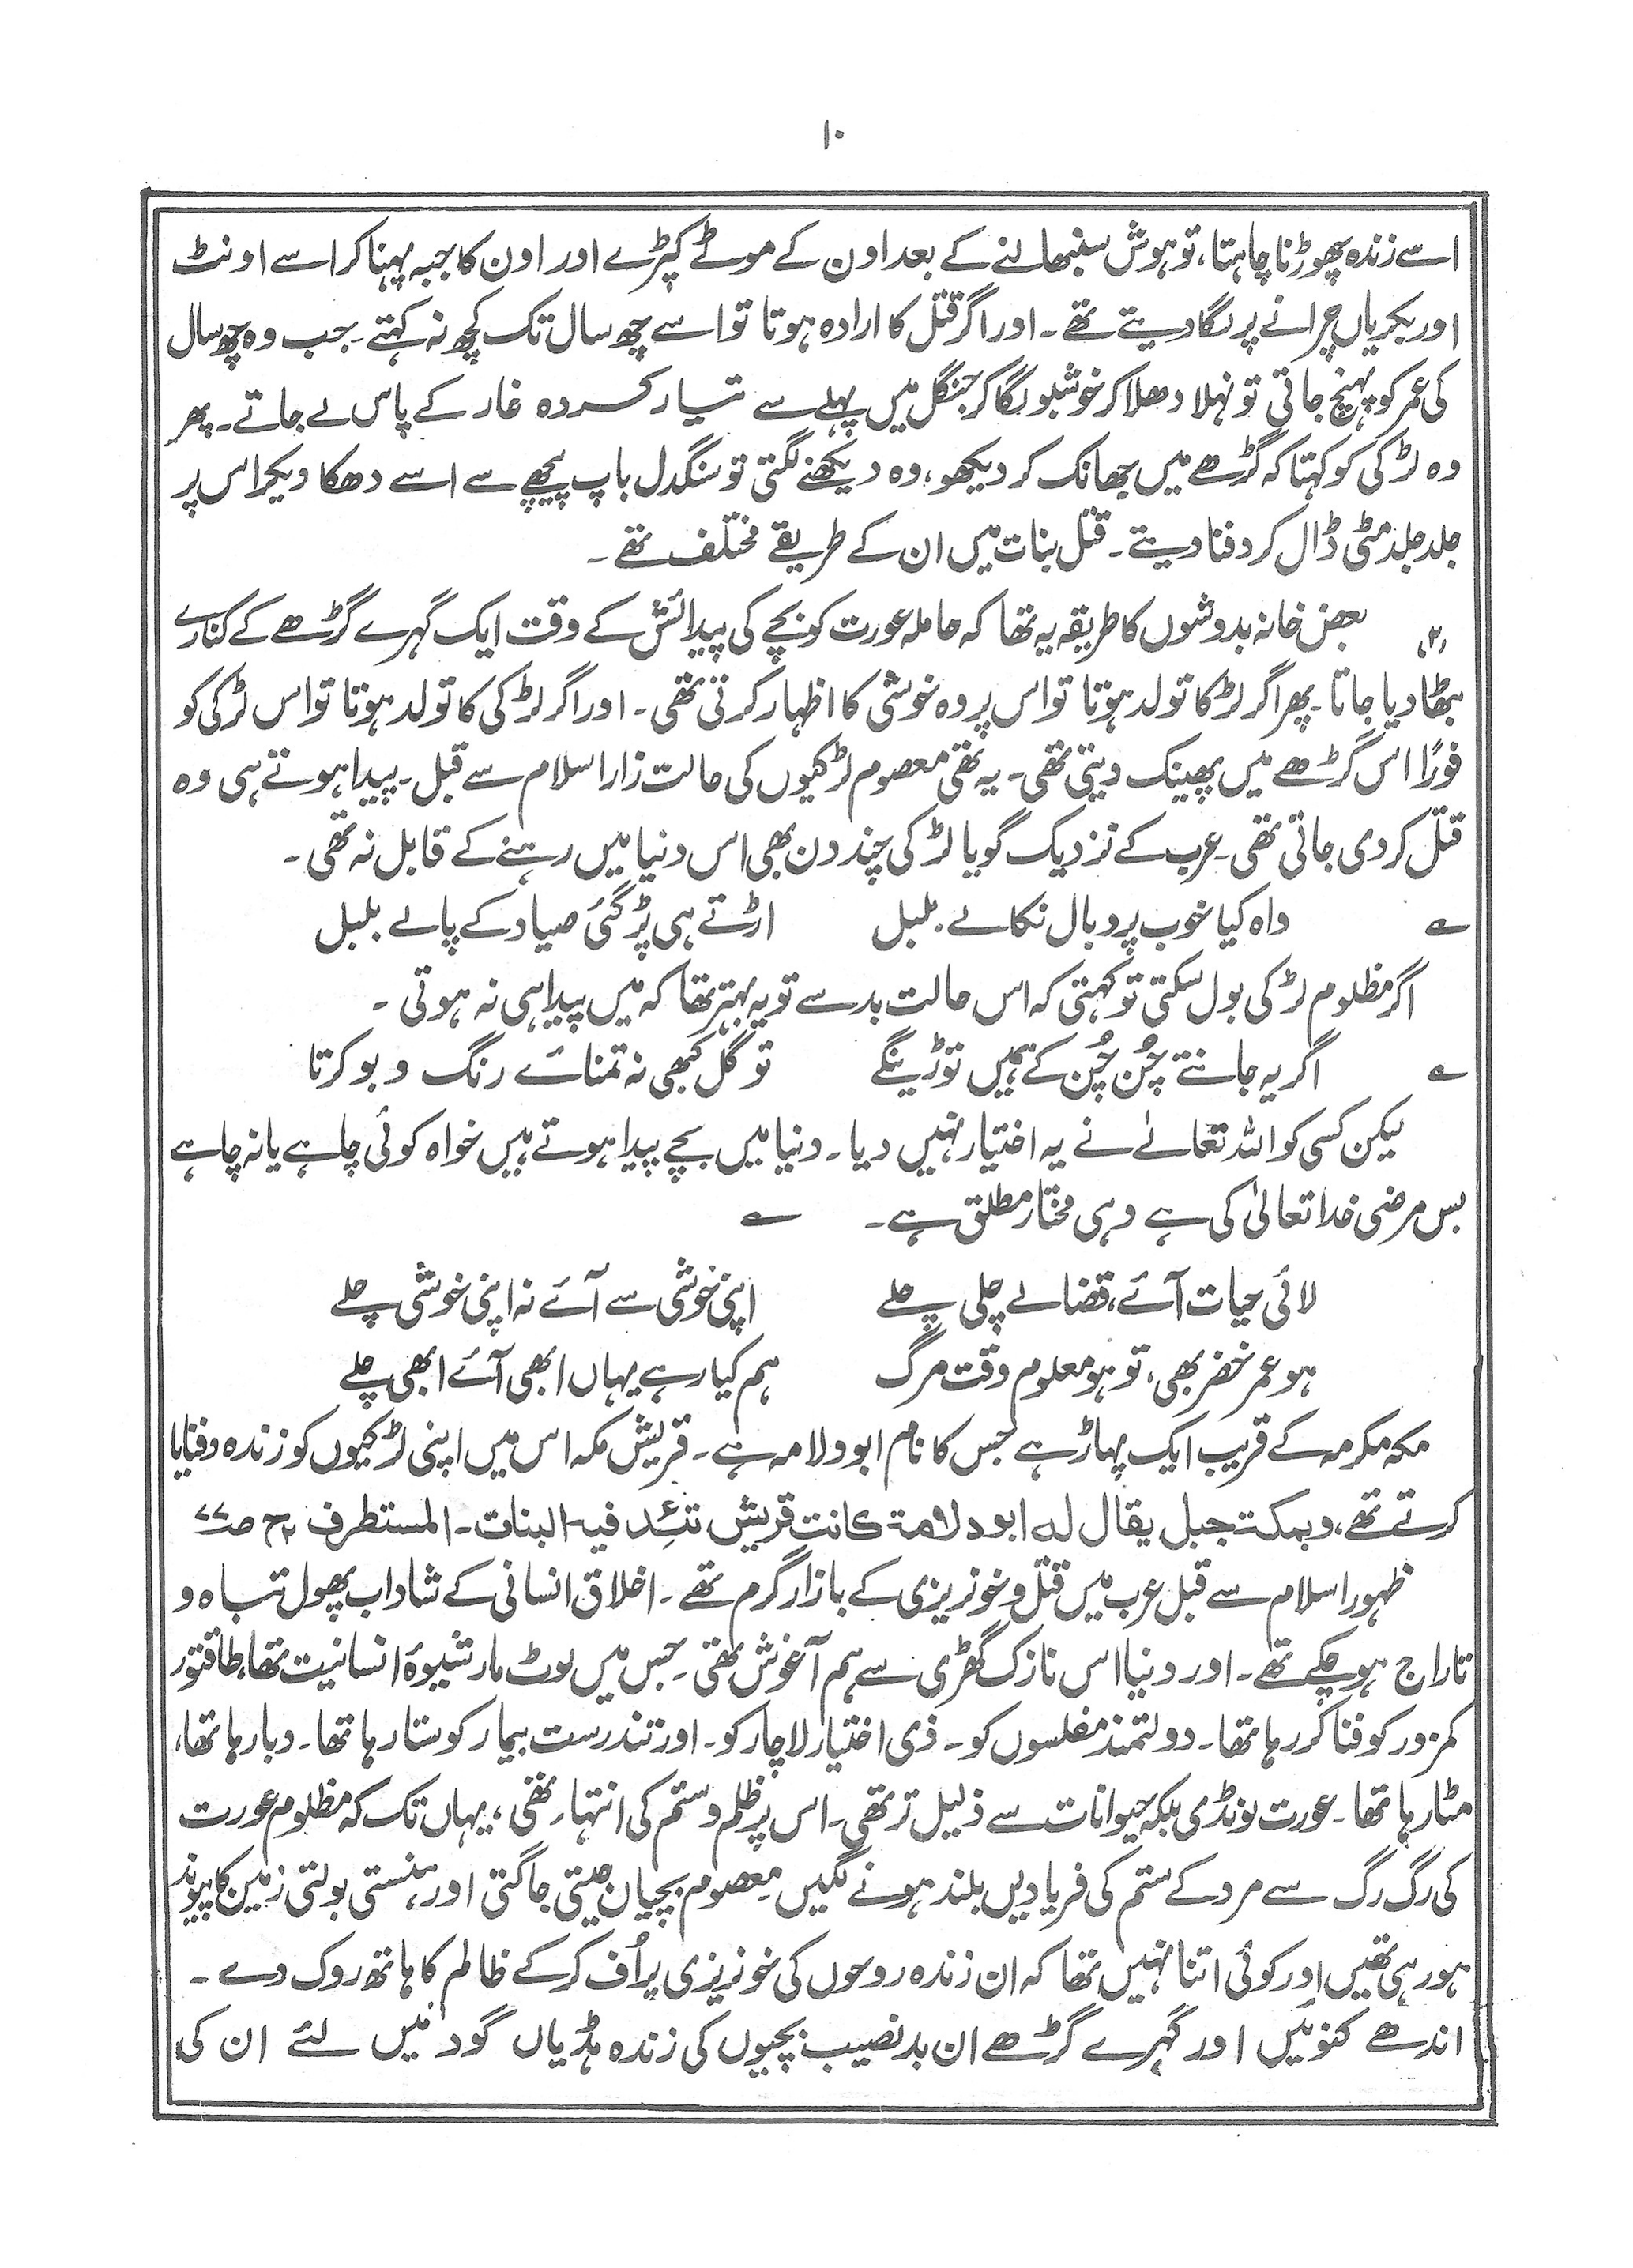 ۱۰
اسے زندہ چھوڑنا چاہتا، تو ہوش سنبھالنے کے بعد اون کے موٹے کپڑے اور اون کا جبہ پہنا کر اسے اونٹ
اور بکریاں چرانے پر لگا دیتے تھے۔ اور اگر قتل کا ارادہ ہوتا تو اسے چھ سال تک کچھ نہ کہتے۔ جب وہ چھ سال
کی عمر کو پہنچ جاتی تو نہلا دھلا کر خوشبو لگا کر جنگل میں پہلے سے تیار کردہ غار کے پاس لے جاتے۔ پھر
وہ لڑکی کو کہتا کہ گڑھے میں جھانک کر دیکھو، وہ دیکھنے لگتی تو سنگدل باپ پیچھے سے اسے دھکا دیکر اس پر
جلد جلد مٹی ڈال کر دفنا دیتے۔ قتل بنات میں ان کے طریقے مختلف تھے۔
(۲) بعض خانہ بدوشوں کا طریقہ یہ تھا کہ حاملہ عورت کو بچے کی پیدائش کے وقت ایک گہرے گڑھے کے کنارے
بٹھا دیا جاتا۔ پھر اگر لڑکا تولد ہوتا تو اس پر وہ خوشی کا اظہار کرتی تھی۔ اور اگر لڑکی کا تولد ہوتا تو اس لڑکی کو
فورًا اس گڑھے میں پھینک دیتی تھی۔ یہ تھی معصوم لڑکیوں کی حالت زار اسلام سے قبل۔ پیدا ہوتے ہی وہ
قتل کر دی جاتی تھی۔ عرب کے نزدیک گویا لڑکی چند دن بھی اس دنیا میں رہنے کے قابل نہ تھی۔
؎ واہ کیا خوب پر و بال نکالے بلبل اڑتے ہی پڑ گئی صیاد کے پالے بلبل
اگر مظلوم لڑکی بول سکتی تو کہتی کہ اس حالت بد سے تو یہ بہتر تھا کہ میں پیدا ہی نہ ہوتی۔
؎ اگر یہ جانتے چُن چُن کے ہمیں توڑینگے تو گل کبھی نہ تمنائے رنگ و بو کرتا
لیکن کسی کو اللہ تعالےٰ نے یہ اختیار نہیں دیا۔ دنیا میں بچے پیدا ہوتے ہیں خواہ کوئی چاہے یا نہ چاہے
بس مرضی خدا تعالیٰ کی ہے وہی مختار مطلق ہے۔ ؎
لائی حیات آئے، قضا لے چلی چلے اپنی خوشی سے آئے نہ اپنی خوشی چلے
ہو عمر خضر بھی، تو ہو معلوم وقت مرگ ہم کیا رہے یہاں ابھی آئے ابھی چلے
مکہ مکرمہ کے قریب ایک پہاڑ ہے جس کا نام ابو دلامہ ہے۔ قریش مکہ اس میں اپنی لڑکیوں کو زندہ دفنایا
کرتے تھے، وبمكة جبل يقال له ابو دلامة كانت قريش تئد فيه البنات۔ المستطرف ج۲ ص۷۷
ظہور اسلام سے قبل عرب میں قتل و خونریزی کے بازار گرم تھے۔ اخلاق انسانی کے شاداب پھول تباہ و
تاراج ہو چکے تھے۔ اور دنیا اس نازک گھڑی سے ہم آغوش تھی۔ جس میں لوٹ مار شیوۂ انسانیت تھا، طاقتور
کمزور کو فنا کر رہا تھا۔ دولتمند مفلسوں کو۔ ذی اختیار لاچار کو۔ اور تندرست بیمار کو ستا رہا تھا۔ دبا رہا تھا،
مٹا رہا تھا۔ عورت لونڈی بلکہ حیوانات سے ذلیل تر تھی۔ اس پر ظلم و ستم کی انتہاء تھی، یہاں تک کہ مظلوم عورت
کی رگ رگ سے مرد کے ستم کی فریادیں بلند ہونے لگیں۔ معصوم بچیاں جیتی جاگتی اور ہنستی بولتی زمین کا پیوند
ہو رہی تھیں اور کوئی اتنا نہیں تھا کہ ان زندہ روحوں کی خونریزی پر اُف کر کے ظالم کا ہاتھ روک دے۔
اندھے کنوئیں اور گہرے گڑھے ان بدنصیب بچیوں کی زندہ ہڈیاں گود میں لئے ان کی